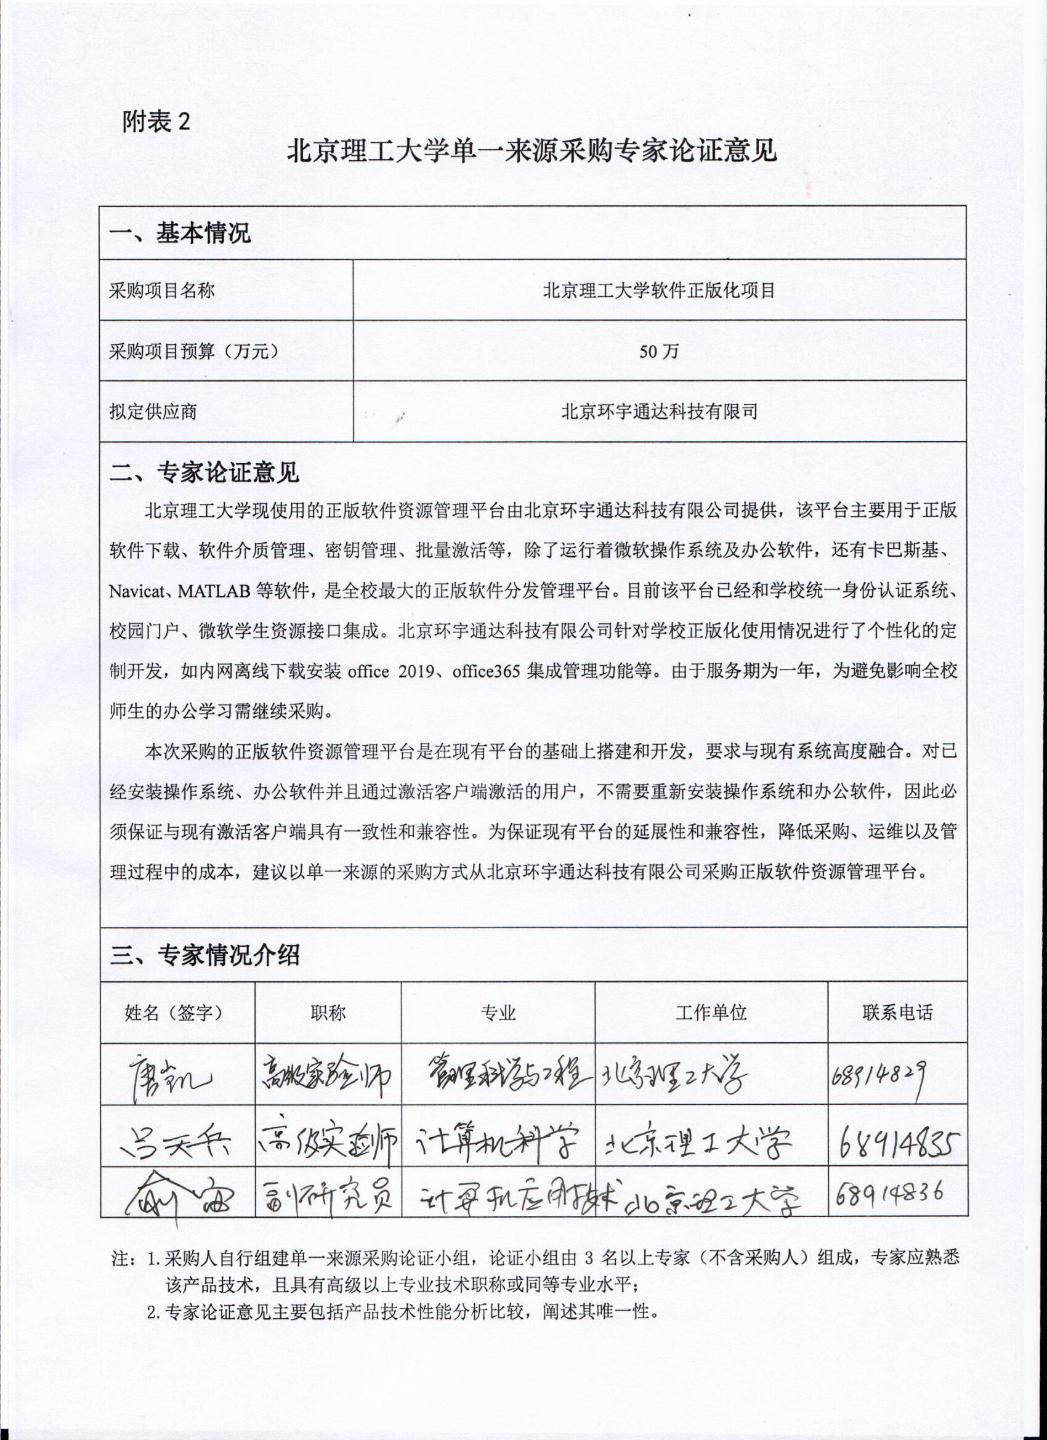 附表 2
北京理工大学单一来源采购专家论证意见
一、基本情况
采购项目名称 北京理工大学软件正版化项目
采购项目预算（万元） 50 万
拟定供应商 北京环宇通达科技有限司
二、专家论证意见
北京理工大学现使用的正版软件资源管理平台由北京环宇通达科技有限公司提供，该平台主要用于正版
软件下载、软件介质管理、密钥管理、批量激活等，除了运行着微软操作系统及办公软件，还有卡巴斯基、
Navicat、MATLAB 等软件，是全校最大的正版软件分发管理平台。目前该平台已经和学校统一身份认证系统、
校园门户、微软学生资源接口集成。北京环宇通达科技有限公司针对学校正版化使用情况进行了个性化的定
制开发，如内网离线下载安装 office 2019、office365 集成管理功能等。由于服务期为一年，为避免影响全校
师生的办公学习需继续采购。
本次采购的正版软件资源管理平台是在现有平台的基础上搭建和开发，要求与现有系统高度融合。对已
经安装操作系统、办公软件并且通过激活客户端激活的用户，不需要重新安装操作系统和办公软件，因此必
须保证与现有激活客户端具有一致性和兼容性。为保证现有平台的延展性和兼容性，降低采购、运维以及管
理过程中的成本，建议以单一来源的采购方式从北京环宇通达科技有限公司采购正版软件资源管理平台。
三、专家情况介绍
姓名（签字） 职称 专业 工作单位 联系电话
高级实验师 管理科学与工程 北京理工大学 68914829
吕天兵 高级实验师 计算机科学 北京理工大学 68914835
俞宙 副研究员 计算机应用技术 北京理工大学 68914836
注：1. 采购人自行组建单一来源采购论证小组，论证小组由 3 名以上专家（不含采购人）组成，专家应熟悉
该产品技术，且具有高级以上专业技术职称或同等专业水平；
2. 专家论证意见主要包括产品技术性能分析比较，阐述其唯一性。